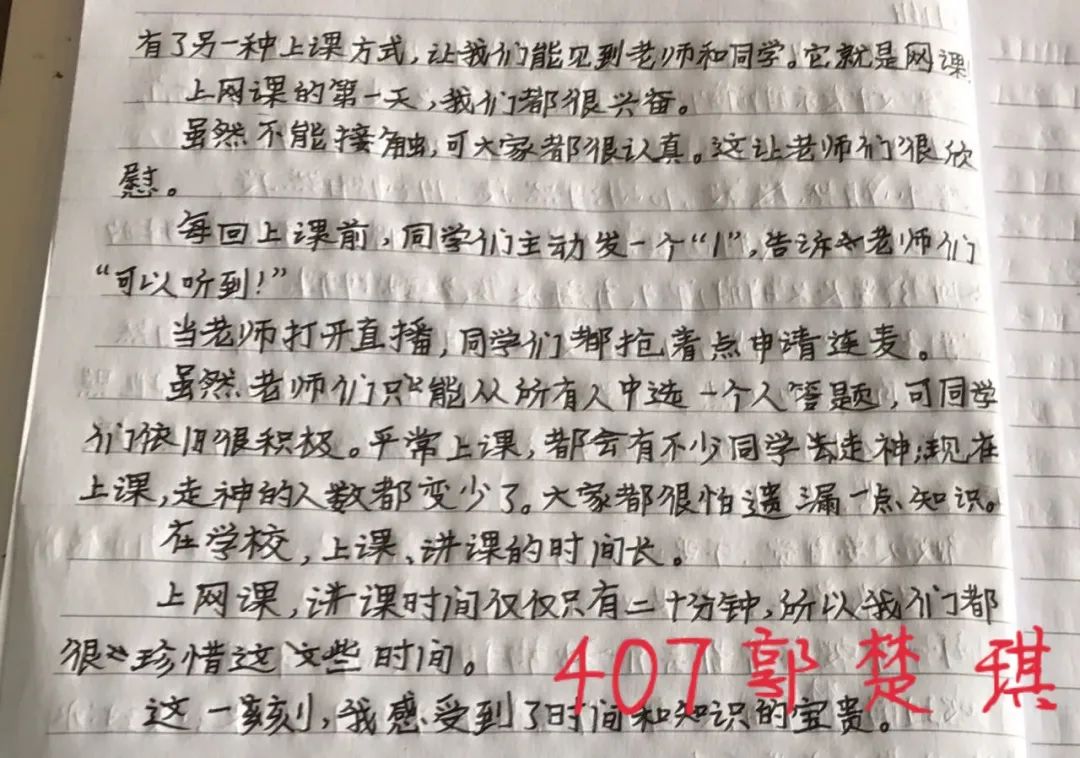 有了另一种上课方式,让我们能见到老师和同学。它就是网课!
上网课的第一天,我们都很兴奋。
虽然不能接触,可大家都很认真。这让老师们很欣
慰。
每回上课前,同学们主动发一个“1”,告诉老师们
“可以听到!”
当老师打开直播,同学们都抢着点申请连麦。
虽然老师们只能从所有人中选一个人答题,可同学
们依旧很积极。平常上课,都会有不少同学去走神;现在
上课,走神的人数都变少了。大家都很怕遗漏一点知识。
在学校,上课、讲课的时间长。
上网课,讲课时间仅仅只有二十分钟,所以我们都
很珍惜这些时间。
这一刻,我感受到了时间和知识的宝贵。
407郭楚琪